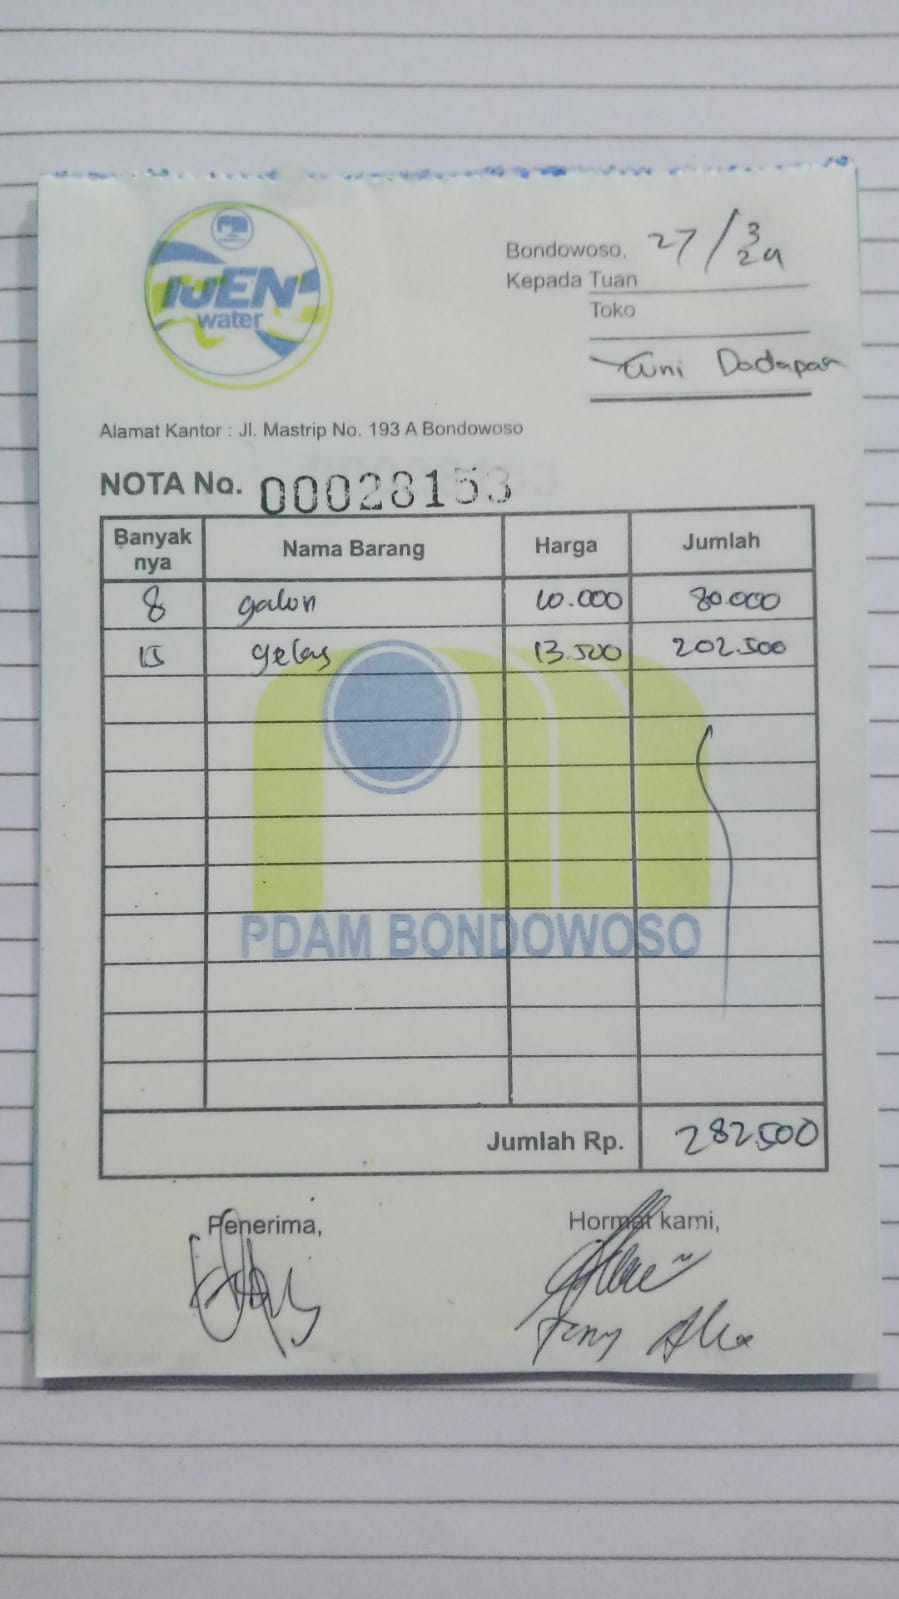 IJEN
water
Bondowoso, 27/3 24
Kepada Tuan
Toko
Yuni Dadapan
Alamat Kantor : Jl. Mastrip No. 193 A Bondowoso
NOTA No. 00028153
Banyak nya Nama Barang Harga Jumlah
8 galon 10.000 80.000
15 gelas 13.500 202.500
PDAM BONDOWOSO
Jumlah Rp. 282.500
Penerima, Hormat kami,